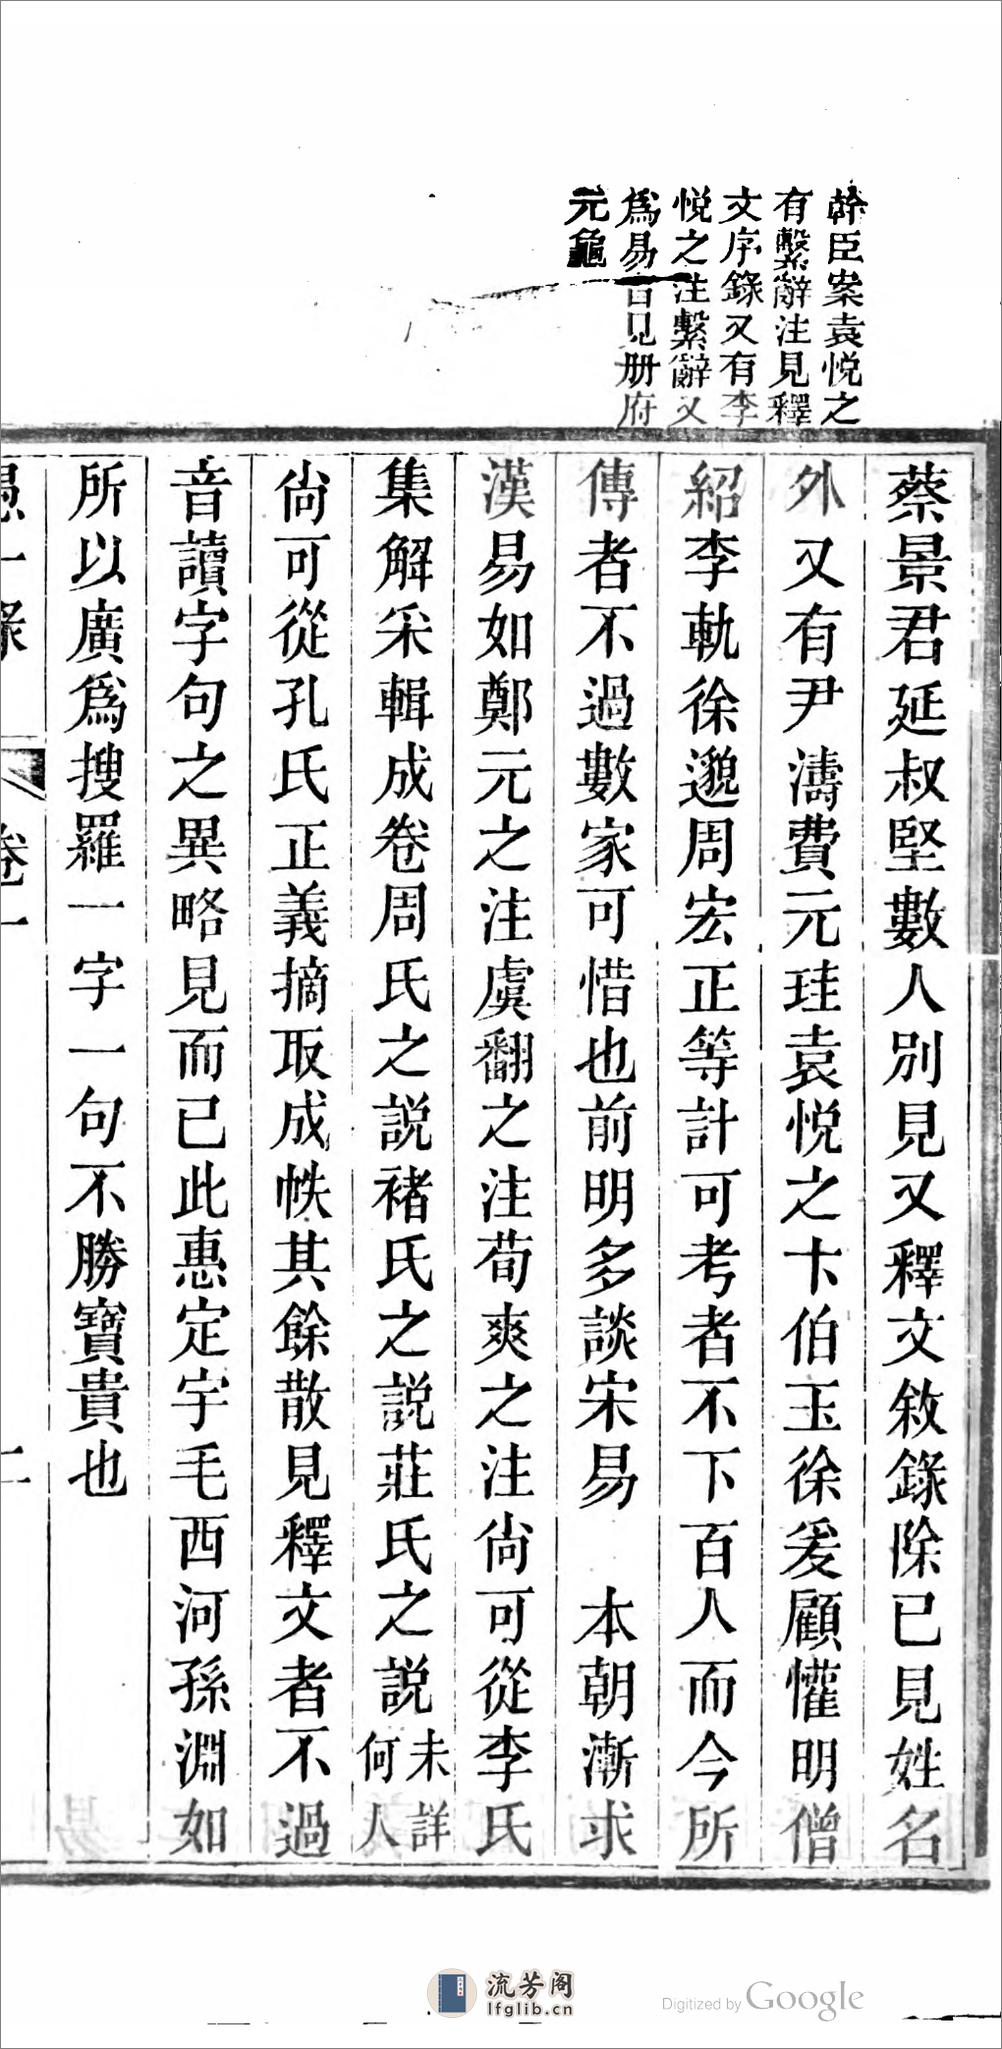 幹臣案袁悅之
有繫辭注見釋
文序錄又有李
悅之注繫辭又
爲易音見册府
元龜
蔡景君延叔堅數人別見又釋文敘錄除已見姓名
外又有尹濤費元珪袁悅之卞伯玉徐爰顧懽明僧
紹李軌徐邈周宏正等計可考者不下百人而今所
傳者不過數家可惜也前明多談宋易　本朝漸求
漢易如鄭元之注虞翻之注荀爽之注尙可從李氏
集解采輯成卷周氏之說褚氏之說莊氏之說未詳何人
尙可從孔氏正義摘取成帙其餘散見釋文者不過
音讀字句之異略見而已此惠定宇毛西河孫淵如
所以廣爲搜羅一字一句不勝寶貴也
愚一錄　卷一　二
流芳阁
lfglib.cn
Digitized by Google